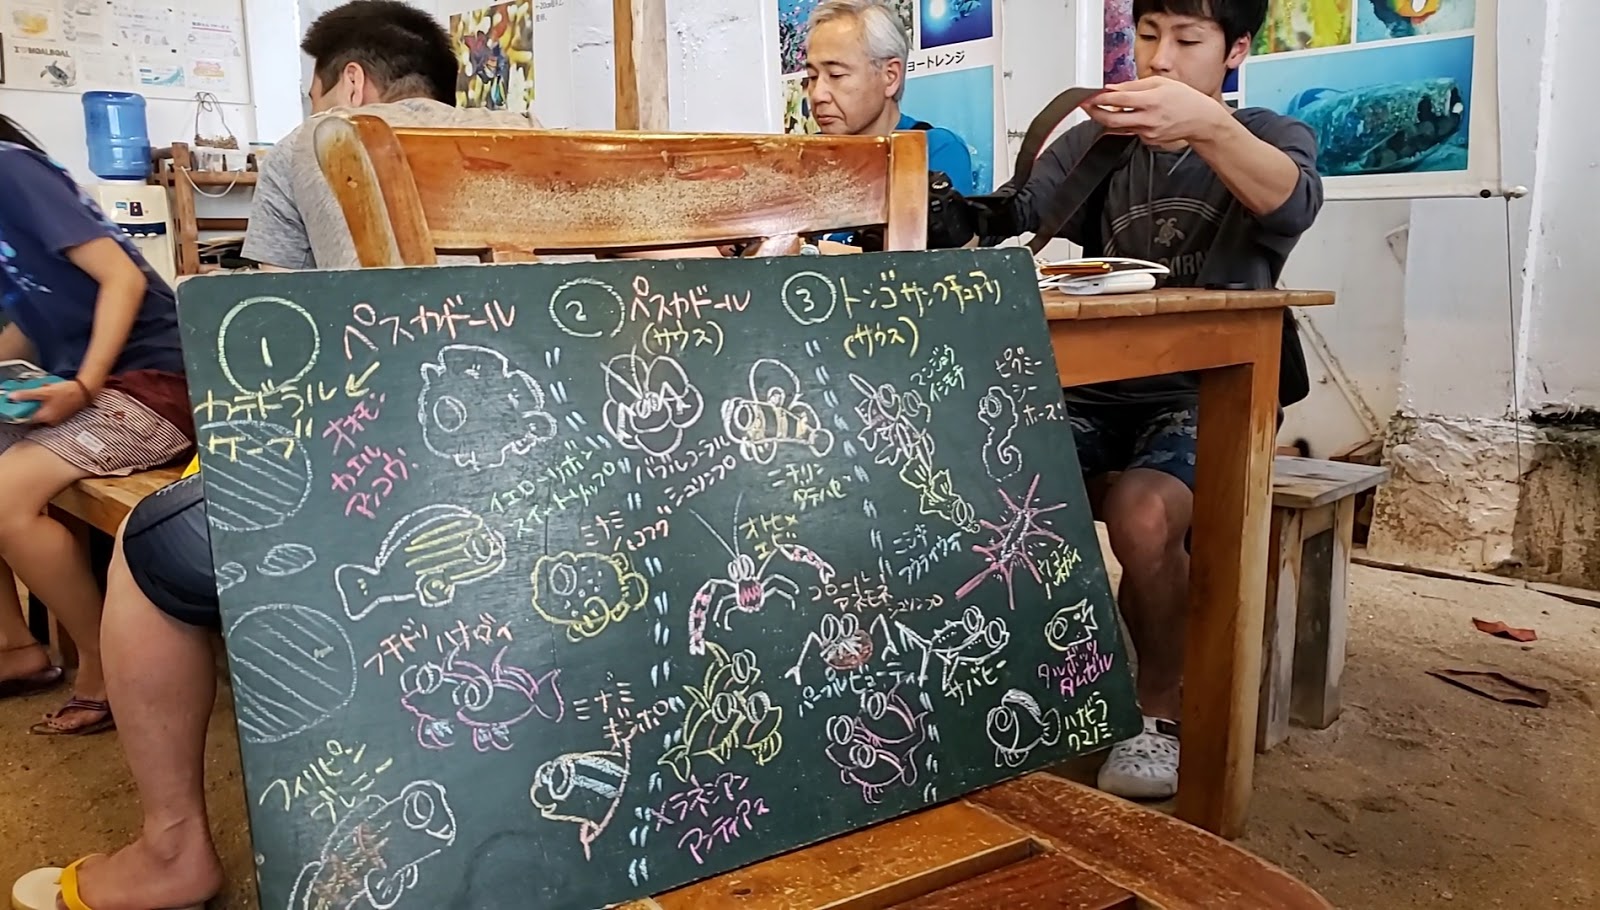 I ♥ MOALBOAL
ョートレンジ
1 ペスカドール
カテドラル
ケーブ
オオモン
カエル
アンコウ!
イエローリボン
スイートリップ
フチドリハナダイ
ミナミ
ハコフグ
ミナミ
ギンポ
フィリピン
ブレニー
2 ペスカドール
(サウス)
バブルコーラル
シュリンプ
ニチリン
ダテハゼ
オトヒメ
エビ
コロール
アネモネ
シュリンプ
パープルビューティー
メラネシアン
アンティアス
3 トンゴサンクチュアリ
(サウス)
ピグミー
シー
ホース!
ニシキ
フウライウオ
サバヒー
タルボッツ
ダムゼル
ハナビラ
クマノミ